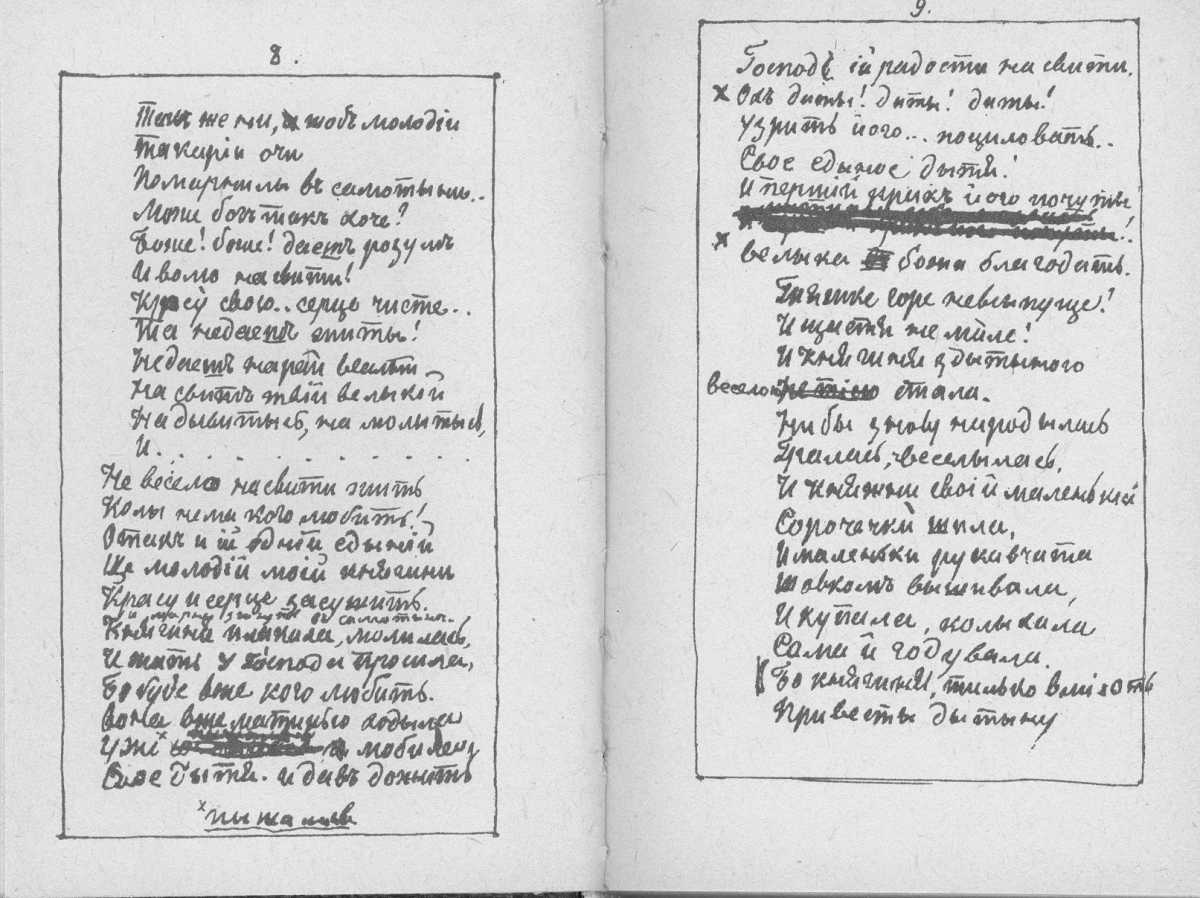 8.
Так же ни, щобъ молодіи
Такаріи очи
Помарнилы въ самотыни..
Може богъ такъ хоче?
Боже! боже! даешъ розумъ
И волю на свити!
Красу свою.. серце чисте..
Та недаешъ жыты!
Недаешъ на рай веселый
На свитъ твій велыкій
Надывытысь, намолытысь,
И. . . . . . . . . .
Не весело на свити жить
Колы нема кого любить!
Отакъ и ій одній едыній
Ще молодій моій княгини
Красу и серце засушить.
и марно згинуть въ самотыни.
Княгиня плакала, молилась,
И жить у Господа просила,
Бо буде вже кого любить.
вона вже матирью ходыла
уже любила
Свое дытя. и давъ дожыть
х пышалась
9.
Господь ій радости на свити.
х Охъ диты! диты! диты!
Узрить його... поциловать..
Свое едыное дытя!
И першій крикъ його почуты!
х велыка божа благодать.
Гиянске горе невсыпуще!
И щастя не міле!
И княгиня з дытыною
веселою стала.
Ниби знову народылась
Гралась, веселылась,
И княжни своій маленькій
Сорочачкы шила,
И маленьки рукавчита
Шовкомъ вышивала,
И купала, колыхала
Сама й годувала.
Бо княгини, тилько вміють
Привесты дытыну